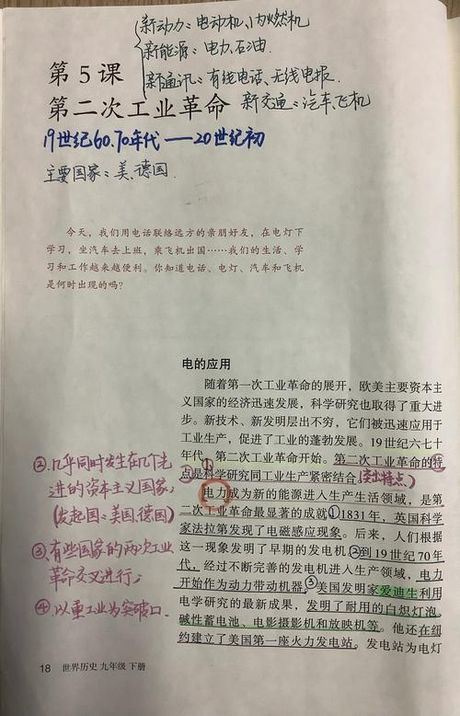 新动力：电动机、内燃机
新能源：电力、石油
新通讯：有线电话、无线电报.
新交通：汽车、飞机
第 5 课
第二次工业革命
19世纪60.70年代——20世纪初
主要国家：美、德国.
今天，我们用电话联络远方的亲朋好友，在电灯下
学习，坐汽车去上班，乘飞机出国……我们的生活、学
习和工作越来越便利。你知道电话、电灯、汽车和飞机
是何时出现的吗？
电的应用
随着第一次工业革命的展开，欧美主要资本主
义国家的经济迅速发展，科学研究也取得了重大进
步。新技术、新发明层出不穷，它们被迅速应用于
工业生产，促进了工业的蓬勃发展。19世纪六七十
年代，第二次工业革命开始。第二次工业革命的特
点①是科学研究同工业生产紧密结合。(突出特点)
电力成为新的能源进入生产生活领域，是第
二次工业革命最显著的成就①1831年，英国科学
家法拉第发现了电磁感应现象。后来，人们根据
这一现象发明了早期的发电机②到19世纪70年
代，经过不断完善的发电机进入生产领域，电力
开始作为动力带动机器③美国发明家爱迪生利用
电学研究的最新成果，发明了耐用的白炽灯泡、
碱性蓄电池、电影摄影机和放映机等。他还在纽
约建立了美国第一座火力发电站。发电站为电灯
②几乎同时发生在几个先
进的资本主义国家,
(发起国：美国、德国)
③有些国家的两次工业
革命交叉进行;
④以重工业为突破口.
18 世界历史 九年级 下册